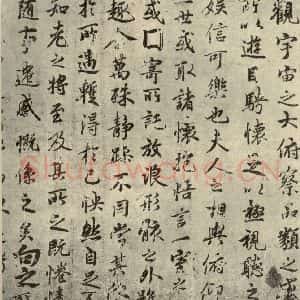 觀宇宙之大俯察品類之盛
所以遊目騁懷足以極視聽之
娛信可樂也夫人之相與俯仰
一世或取諸懷抱悟言一室
或因寄所託放浪形骸之外雖
趣舍萬殊靜躁不同當其欣
於所遇暫得於己怏然自足不
知老之將至及其所之既惓情
隨事遷感慨係之矣向之
Shufawang.CN